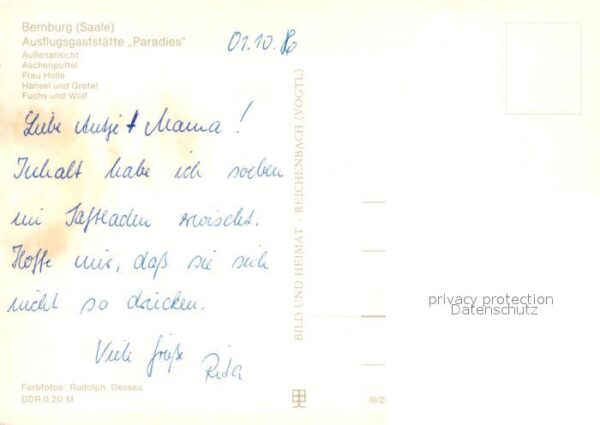 Bernburg (Saale)
Ausflugsgaststätte „Paradies"
Außenansicht
Aschenputtel
Frau Holle
Hänsel und Gretel
Fuchs und Wolf
01.10.86
Liebe Antje + Mama!
Inhalt habe ich soeben
im Saftladen erwischt.
Hoffe nur, daß sie sich
nicht so drücken.
Viele Grüße
Rita
BILD UND HEIMAT · REICHENBACH (VOGTL)
Farbfotos: Rudolph, Dessau
DDR 0,20 M
III/2
privacy protection
Datenschutz